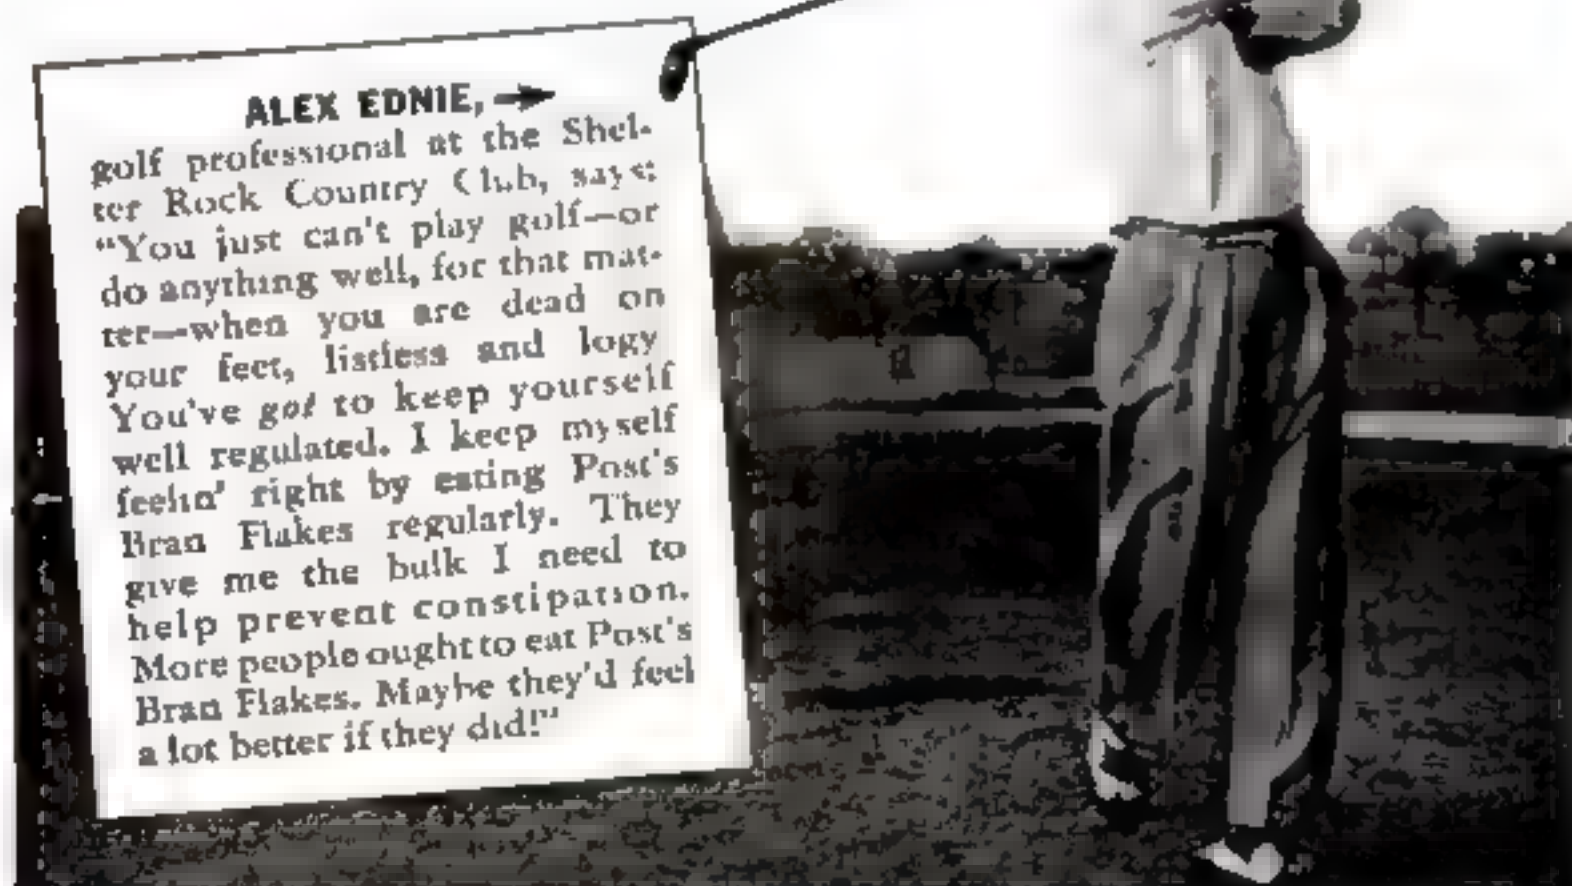 ALEX EDNIE,
golf professional at the Shel-
ter Rock Country Club, says:
"You just can't play golf—or
do anything well, for that mat-
ter—when you are dead on
your feet, listless and logy
You've got to keep yourself
well regulated. I keep myself
feelin' right by eating Post's
Bran Flakes regularly. They
give me the bulk I need to
help prevent constipation.
More people ought to eat Post's
Bran Flakes. Maybe they'd feel
a lot better if they did!"